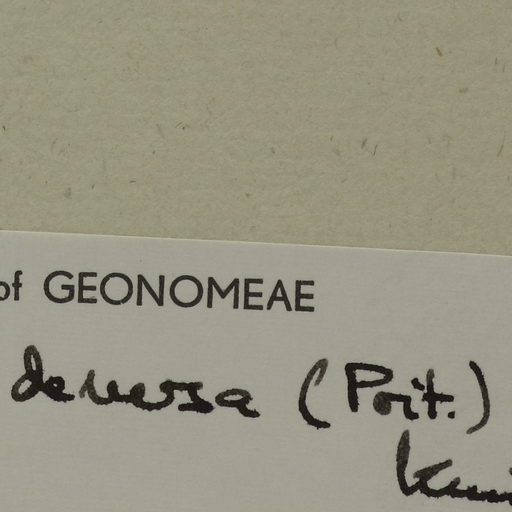 of GEONOMEAE
deversa (Poit.)